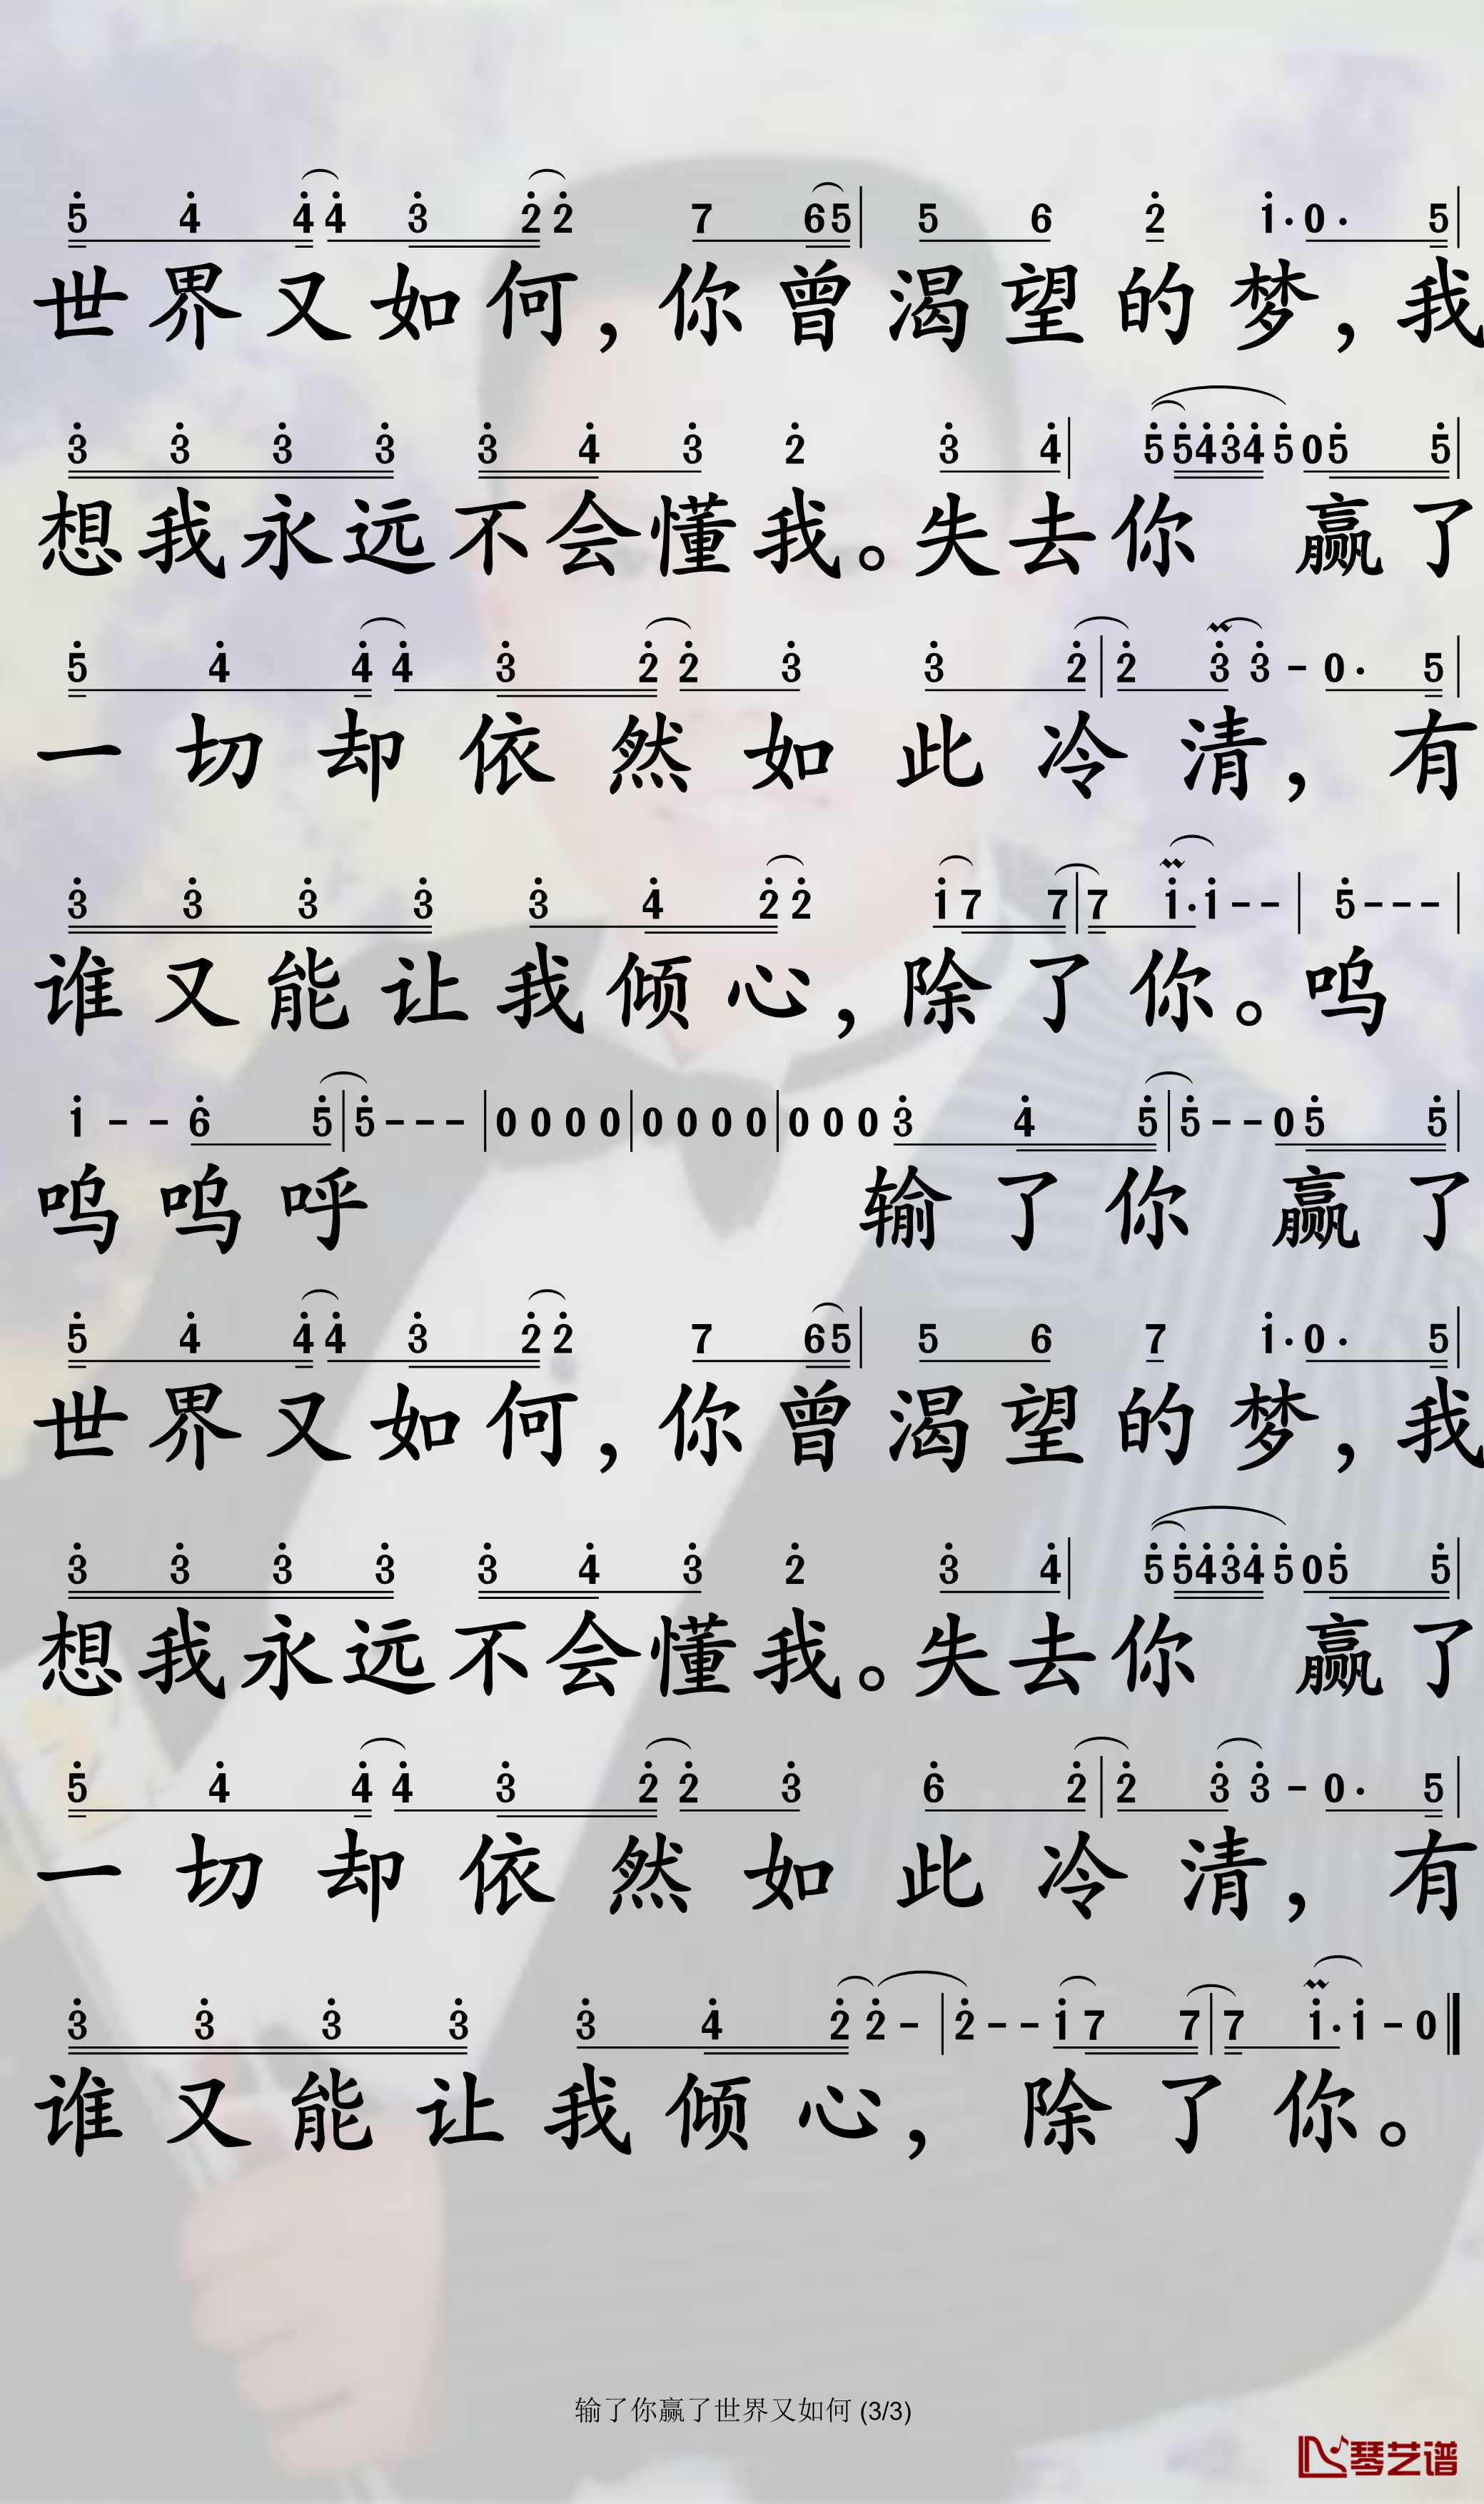 5 4 4 4 3 2 2 7 6 5 | 5 6 2 1 · 0 · 5 |
世界又如何，你曾渴望的梦，我
3 3 3 3 3 4 3 2 3 4 | 5 5 4 3 4 5 0 5 5 |
想我永远不会懂我。失去你 赢了
5 4 4 4 3 2 2 3 3 2 | 2 3 3 - 0 · 5 |
一切却依然如此冷清，有
3 3 3 3 3 4 2 2 1 7 7 | 7 1 · 1 - - | 5 - - - |
谁又能让我倾心，除了你。呜
1 - - 6 5 | 5 - - - | 0 0 0 0 | 0 0 0 0 | 0 0 0 3 4 5 | 5 - - 0 5 5 |
呜呜呼 输了你 赢了
5 4 4 4 3 2 2 7 6 5 | 5 6 7 1 · 0 · 5 |
世界又如何，你曾渴望的梦，我
3 3 3 3 3 4 3 2 3 4 | 5 5 4 3 4 5 0 5 5 |
想我永远不会懂我。失去你 赢了
5 4 4 4 3 2 2 3 6 2 | 2 3 3 - 0 · 5 |
一切却依然如此冷清，有
3 3 3 3 3 4 2 2 - | 2 - - 1 7 7 | 7 1 · 1 - 0 ‖
谁又能让我倾心，除了你。
输了你赢了世界又如何 (3/3)
琴艺谱